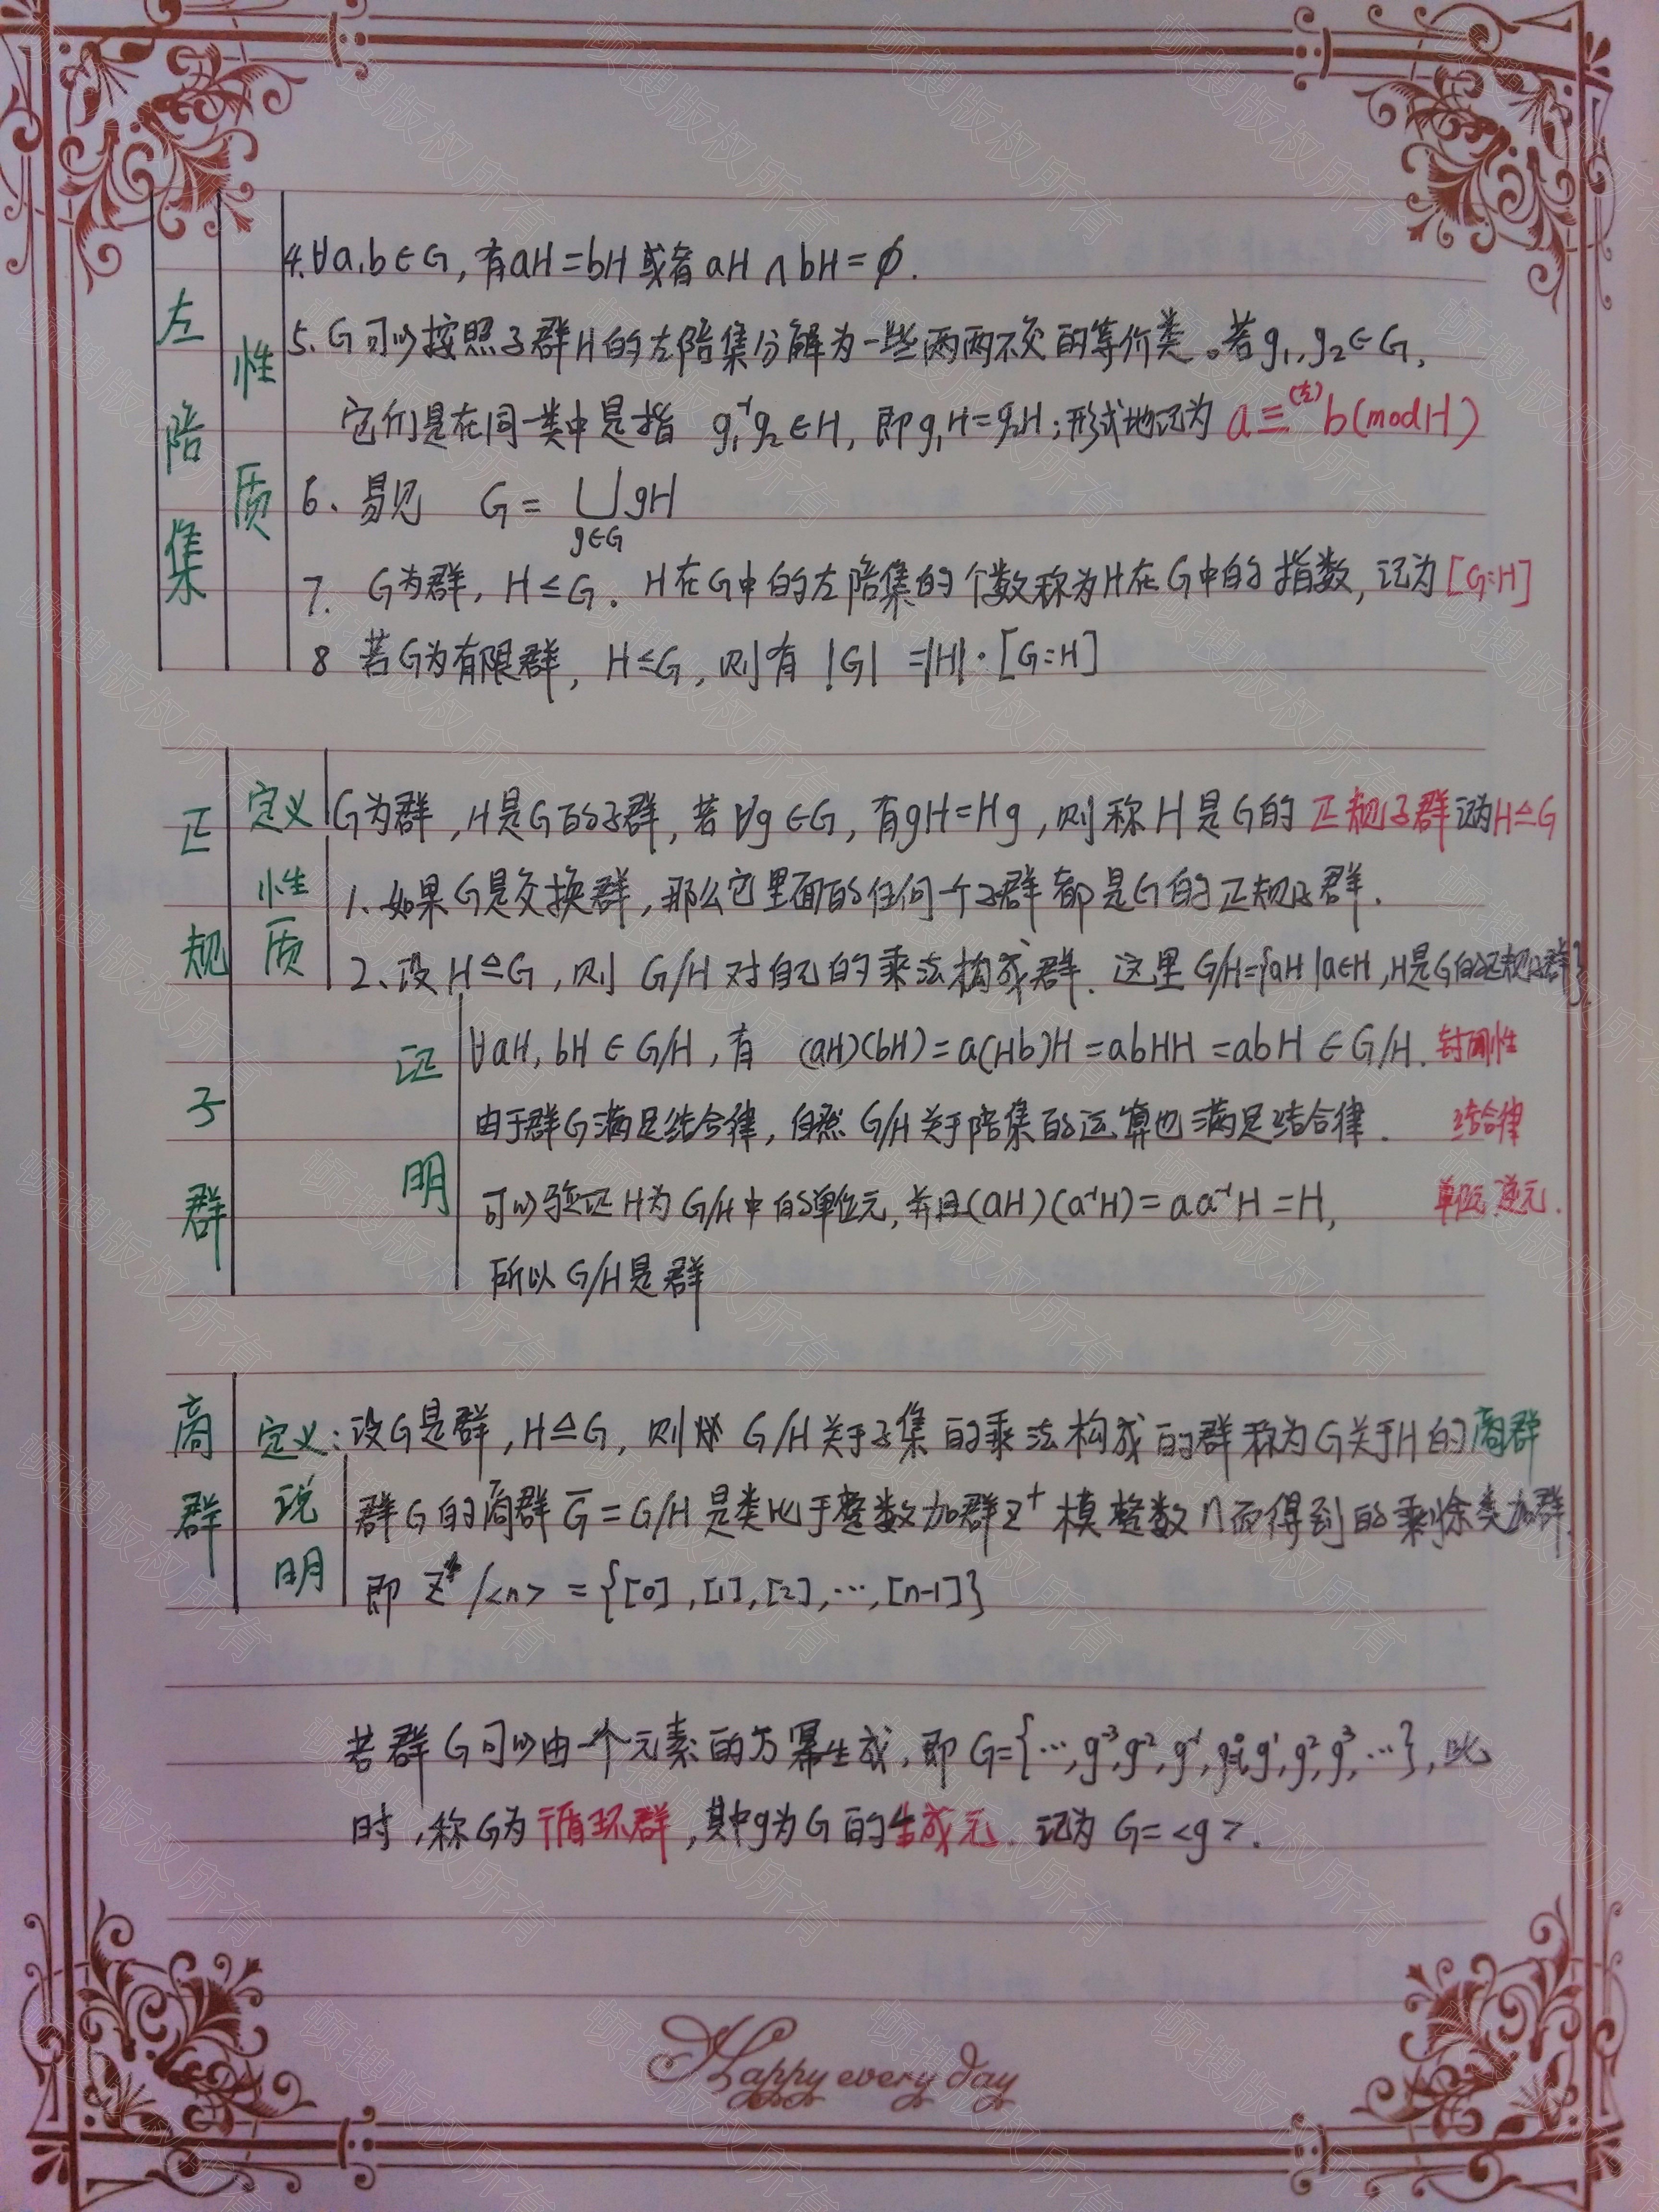 4. ∀a,b∈G, 有aH=bH 或者 aH∩bH=∅.
5. G可以按照子群H的左陪集分解为一些两两不交的等价类。若g₁,g₂∈G,
它们是在同一类中是指 g₁⁻¹g₂∈H, 即g₁H=g₂H; 形式地记为 a≡⁽左⁾b(modH)
6、易见 G=⋃gH
g∈G
7. G为群, H≤G. H在G中的左陪集的个数称为H在G中的指数, 记为[G:H]
8 若G为有限群, H≤G, 则有 |G| =|H|·[G:H]
左陪集
性质
定义 G为群, H是G的子群, 若∀g∈G, 有gH=Hg, 则称H是G的正规子群记为H⊴G
性质
1、如果G是交换群, 那么它里面的任何一个子群都是G的正规子群.
2、设H⊴G, 则 G/H 对自己的乘法构成群. 这里G/H={aH|a∈H, H是G的正规子群}
∀aH, bH∈G/H, 有 (aH)(bH)=a(Hb)H=abHH=abH∈G/H. 封闭性
证明
由于群G满足结合律, 自然 G/H关于陪集的运算也满足结合律. 结合律
可以验证H为G/H中的单位元, 并且(aH)(a⁻¹H)=aa⁻¹H=H, 单位元 逆元.
所以G/H是群
正规子群
定义: 设G是群, H⊴G, 则 G/H关于子集的乘法构成的群称为G关于H的商群
说明
群G的商群 G̅=G/H 是类比于整数加群Z⁺模整数n而得到的剩余类加群.
即 Z⁺/<n> ={[0],[1],[2],⋯,[n-1]}
商群
若群G可以由一个元素的方幂生成, 即G={⋯,g⁻³,g⁻²,g⁻¹,g¹,g²,g³,⋯}, 此
时, 称G为循环群, 其中g为G的生成元. 记为 G=<g>.
Happy every day
硕搜版权所有